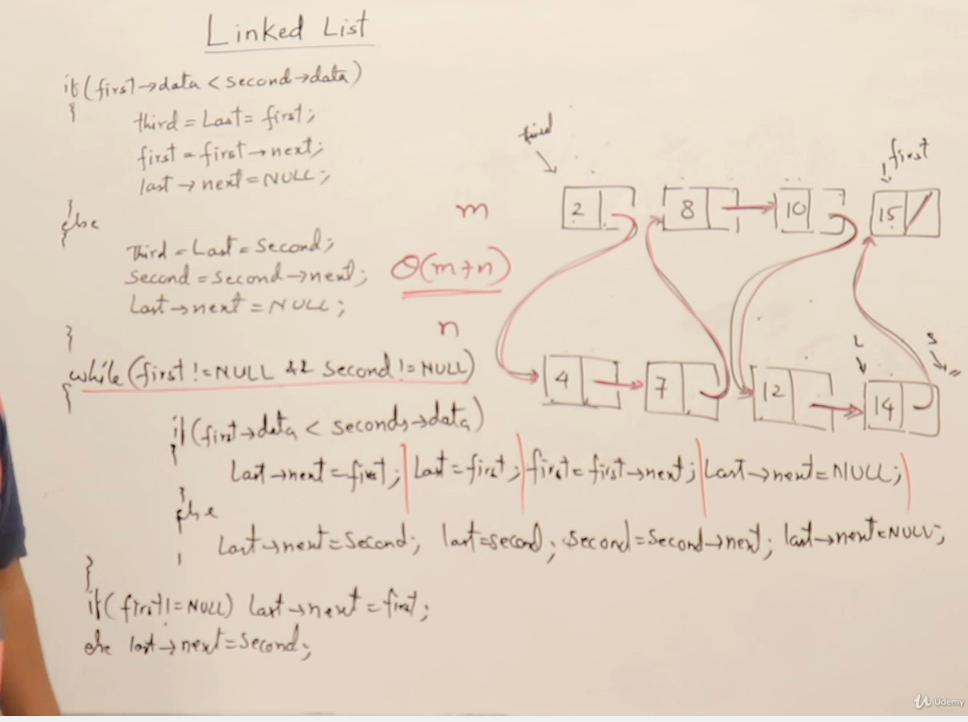 Linked List
if(first→data < second→data)
{
third = Last = first;
first = first→next;
last→next = NULL;
}
else
{
Third = Last = Second;
Second = Second→next;
Last→next = NULL;
}
while(first != NULL && Second != NULL)
{
if(first→data < seconds→data)
{
Last→next = first; Last = first; first = first→next; Last→next = NULL;
}
else
Last→next = Second; last = second; Second = Second→next; last→next = NULL;
}
if(first != NULL) last→next = first;
else last→next = Second;
m
O(m+n)
n
first
2 8 10 15
L S
4 7 12 14
Udemy